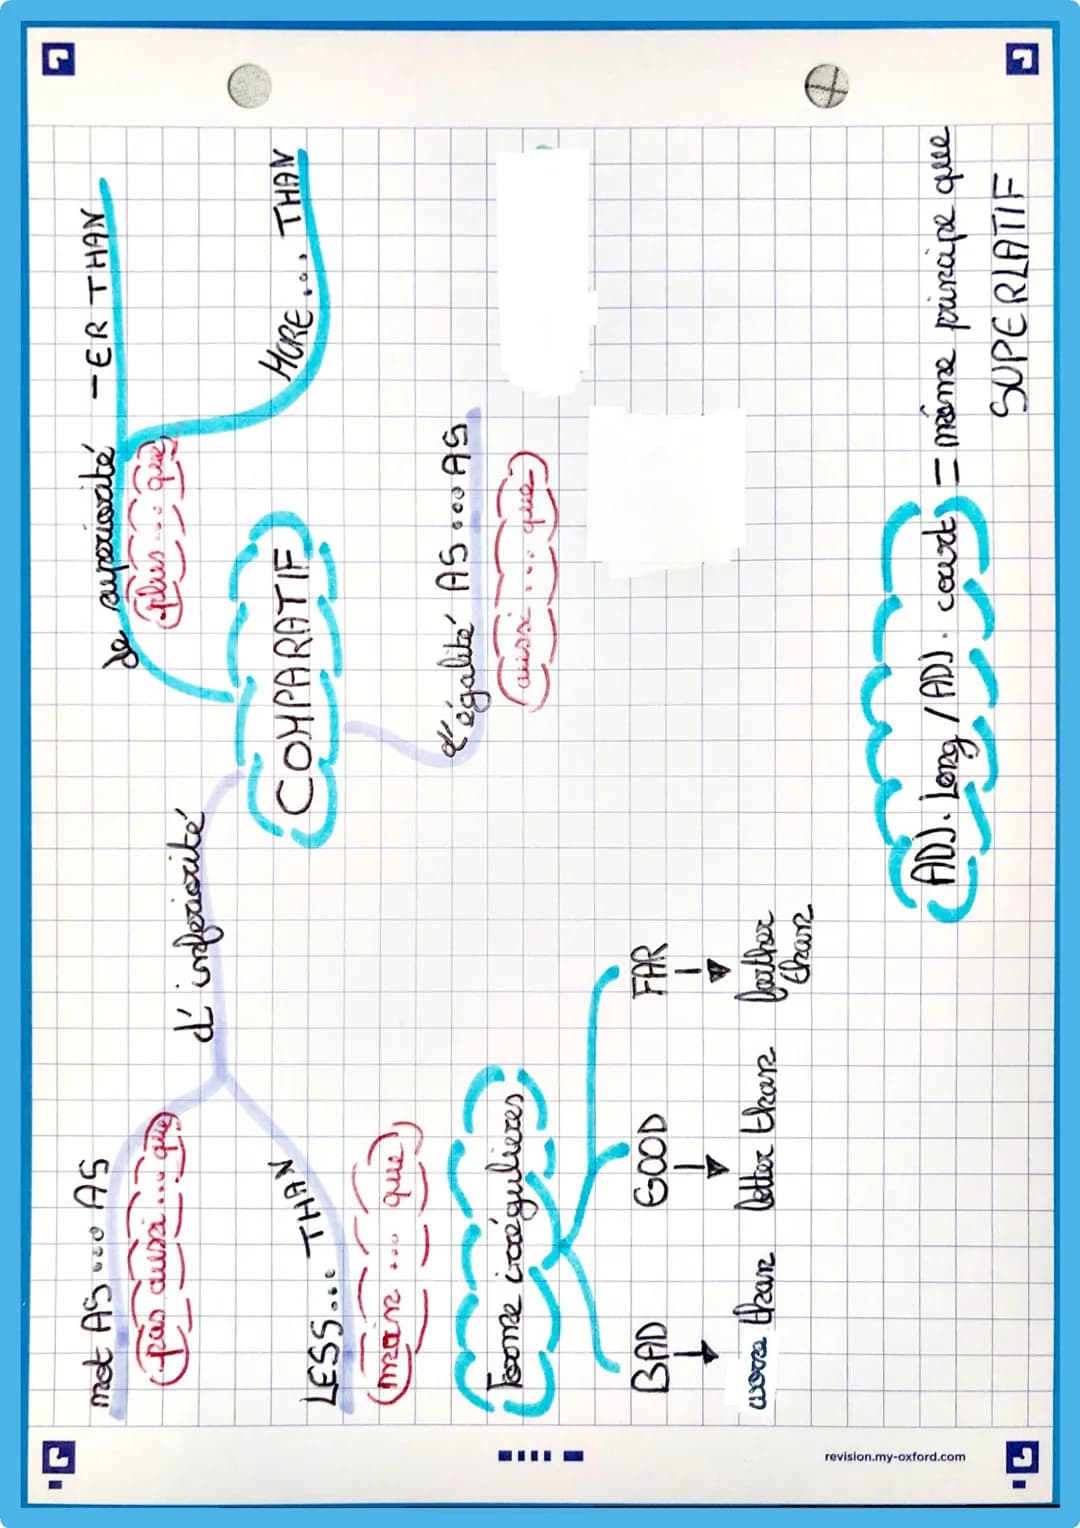 not AS... AS
(pas aussi... que)
d'inferiorité
LESS... THAN
(moin... que)
COMPARATIF
de superiorité
(plus... que)
-ER THAN
MORE... THAN
d'égalité AS... AS
(aussi... que)
Forme irrégulieres
BAD
GOOD
FAR
worse than
better than
farther
than
ADJ. Long / ADJ. court = même principe que
SUPERLATIF
revision.my-oxford.com